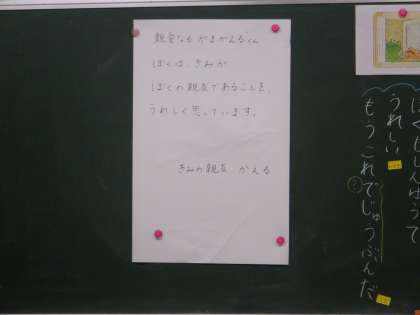 親愛なる がまがえるくん
ぼくは、きみが
ぼくの親友であることを、
うれしく思っています。
きみの親友 かえる
うれしい。
もうこれでじゅうぶんだ